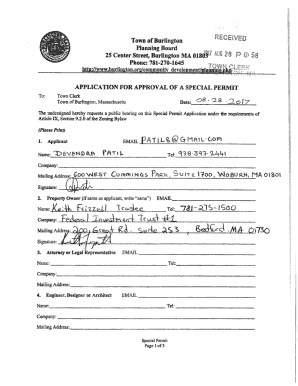 Town of Burlington
Planning Board
25 Center Street, Burlington MA 01803
Phone: 781-270-1645
http://www.burlington.org/community_development/planning.php
RECEIVED
AUG 28 P 0:58
TOWN CLERK
APPLICATION FOR APPROVAL OF A SPECIAL PERMIT
To: Town Clerk
Town of Burlington, Massachusetts Date: 08-28-2017
The undersigned hereby requests a public hearing on this Special Permit Application under the requirements of
Article IX, Section 9.2.0 of the Zoning Bylaw
(Please Print)
1. Applicant EMAIL PATIL8@GMAIL.COM
Name: DEVENDRA PATIL Tel: 978-397-2441
Company:
Mailing Address: 600 WEST CUMMINGS PARK, SUITE 1700, WOBURN, MA 01801
Signature:
2. Property Owner (if same as applicant, write "same") EMAIL
Name: Keith Frizzell Trustee Tel: 781-275-1500
Company: Federal Investment Trust #1
Mailing Address: 200 Great Rd. Suite 253, Bedford MA 01730
Signature:
3. Attorney or Legal Representative EMAIL
Name: Tel:
Company:
Mailing Address:
4. Engineer, Designer or Architect EMAIL
Name: Tel:
Company:
Mailing Address:
Special Permit
Page 1 of 3